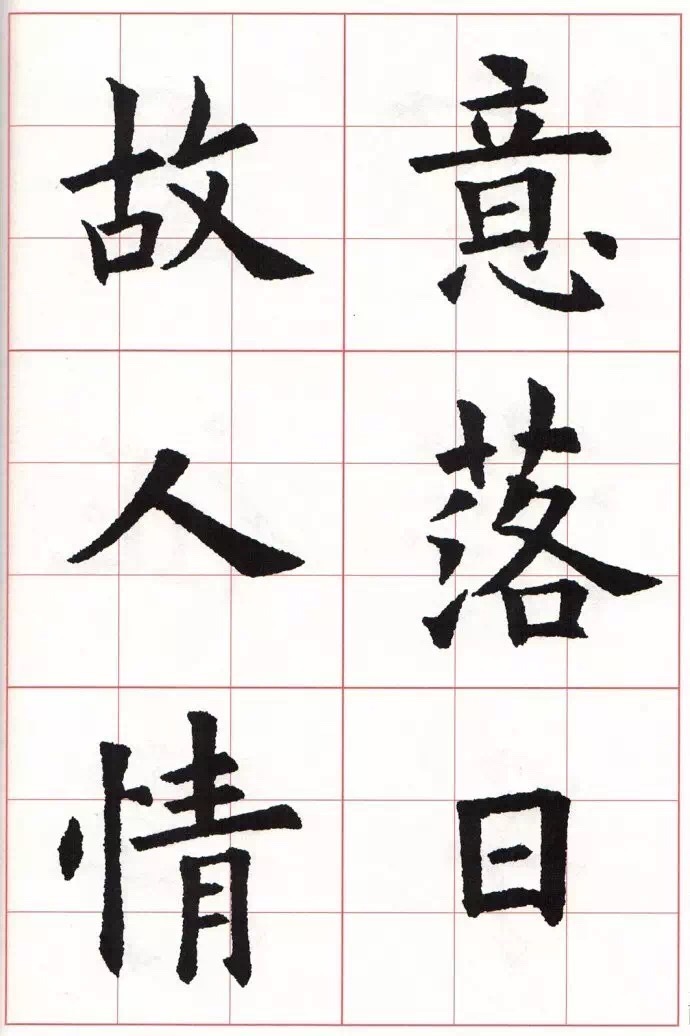 意落日
故人情